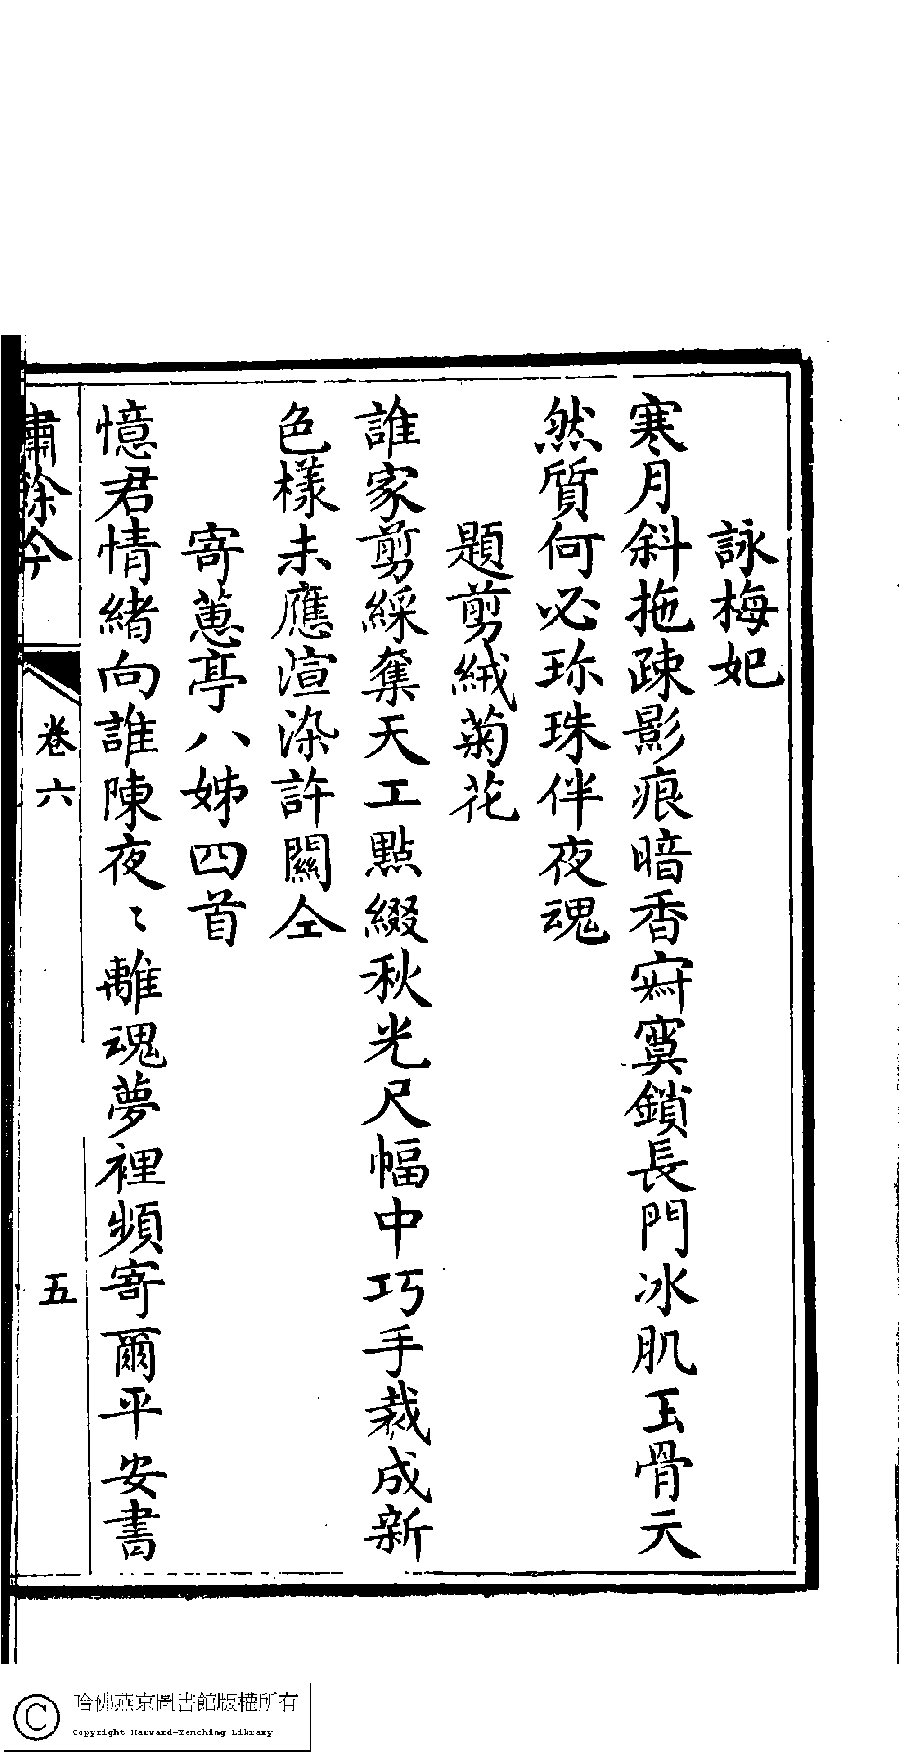 詠梅妃
寒月斜拖疎影痕暗香寂寞鎖長門冰肌玉骨元
然質何必珎珠伴夜魂
題剪絨菊花
誰家剪綵奪天工點綴秋光尺幅中巧手裁成新
色樣未應渲染許關仝
寄蕙亭八姊四首
憶君情緒向誰陳夜〻離魂夢裡頻寄爾平安書
繡餘今
卷六
五
哈佛燕京圖書館版權所有
Copyright Harvard-Yenching Library